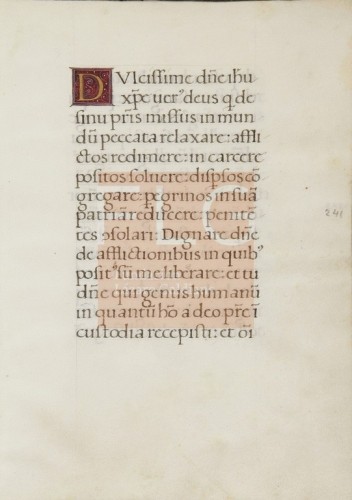 Dulcissime dñe ihu
xp̃e uer⁹ deus q̃ de
sinu p̃ris missus in mun
dũ peccata relaxare: affli
ctos redimere: in carcere
positos soluere: dispsos cõ
gregare: pegrinos in suã
patriã reducere: penitẽ
tes ꝯsolari: Dignare dñe
de afflictionibus in quib⁹
posit⁹ sũ me liberare: et tu
dñe qui genus humanũ
in quantũ hõ a deo p̃re ĩ
custodia recepisti: et oĩ
241
TLC